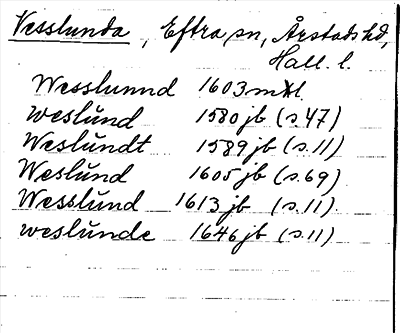 Vesslunda, Eftra sn, Årstads hd,
Hall. l.
Wesslunnd 1603 mtl
weslŭnd 1580 jb (s. 47)
Weslŭndt 1589 jb (s. 11)
Weslŭnd 1605 jb (s. 69)
Wesslŭnd 1613 jb (s. 11).
weslŭnde 1646 jb (s. 11)